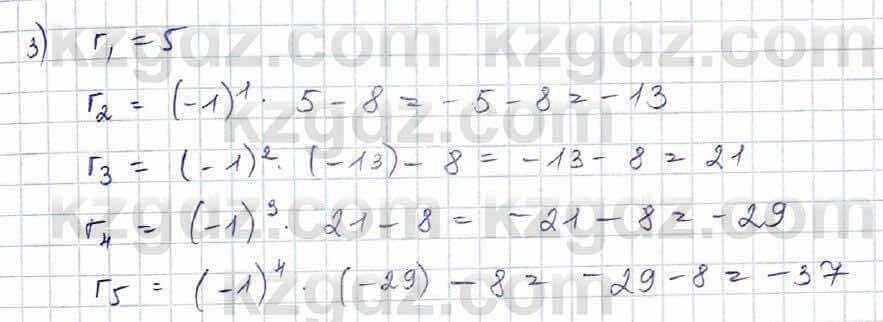 3) r₁ = 5
r₂ = (-1)¹ · 5 - 8 = -5 - 8 = -13
r₃ = (-1)² · (-13) - 8 = -13 - 8 = 21
r₄ = (-1)³ · 21 - 8 = -21 - 8 = -29
r₅ = (-1)⁴ · (-29) - 8 = -29 - 8 = -37
kzgdz.com
kzgdz.com
kzgdz.com
kzgdz.com